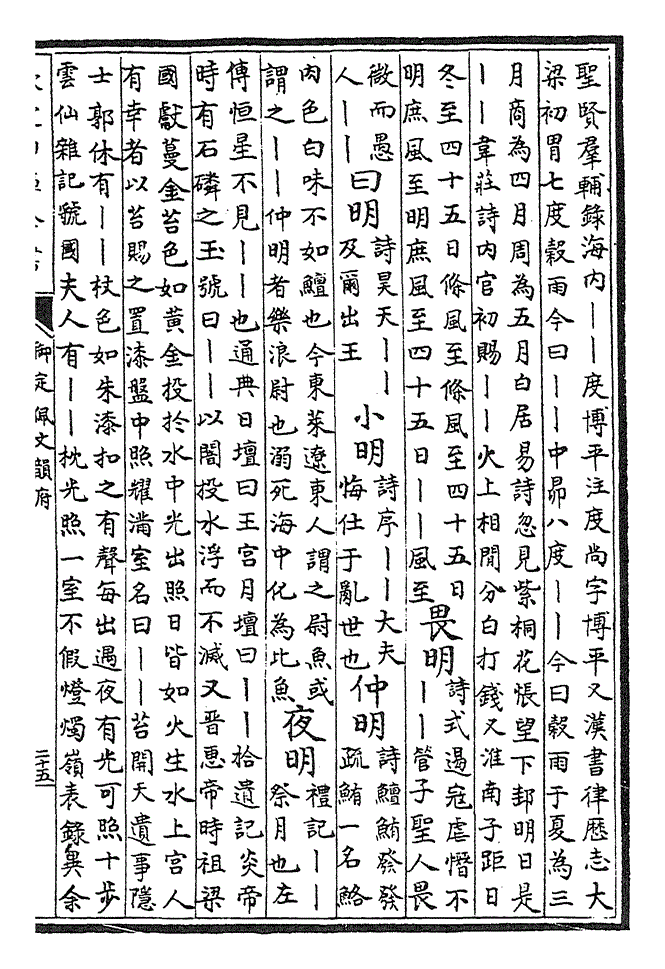 聖賢羣輔錄海内——度博平注度尚字博平又漢書律歷志大
梁初胃七度穀雨今曰——中昴八度——今曰穀雨于夏為三
月商為四月周為五月白居易詩忽見紫桐花悵望下邽明日是
——韋莊詩内官初賜——火上相閒分白打錢又淮南子距日
冬至四十五日條風至條風至四十五日
明庶風至明庶風至四十五日——風至
畏明
詩式遏寇虐憯不
——管子聖人畏
微而愚
人——
曰明
詩昊天——
及爾出王
小明
詩序——大夫
悔仕于亂世也
仲明
詩鱣鮪發發
疏鮪一名鮥
肉色白味不如鱣也今東萊遼東人謂之尉魚或
謂之——仲明者樂浪尉也溺死海中化為此魚
夜明
禮記——
祭月也左
傳恒星不見——也通典日壇曰王宮月壇曰——拾遺記炎帝
時有石璘之玉號曰——以闇投水浮而不滅又晉惠帝時祖梁
國獻蔓金苔色如黄金投於水中光出照日皆如火生水上宫人
有幸者以苔賜之置漆盤中照耀滿室名曰——苔開天遺事隱
士郭休有——杖色如朱漆扣之有聲每出遇夜有光可照十步
雲仙雜記虢國夫人有——枕光照一室不假燈燭嶺表錄異余
御定佩文韻府
二十五